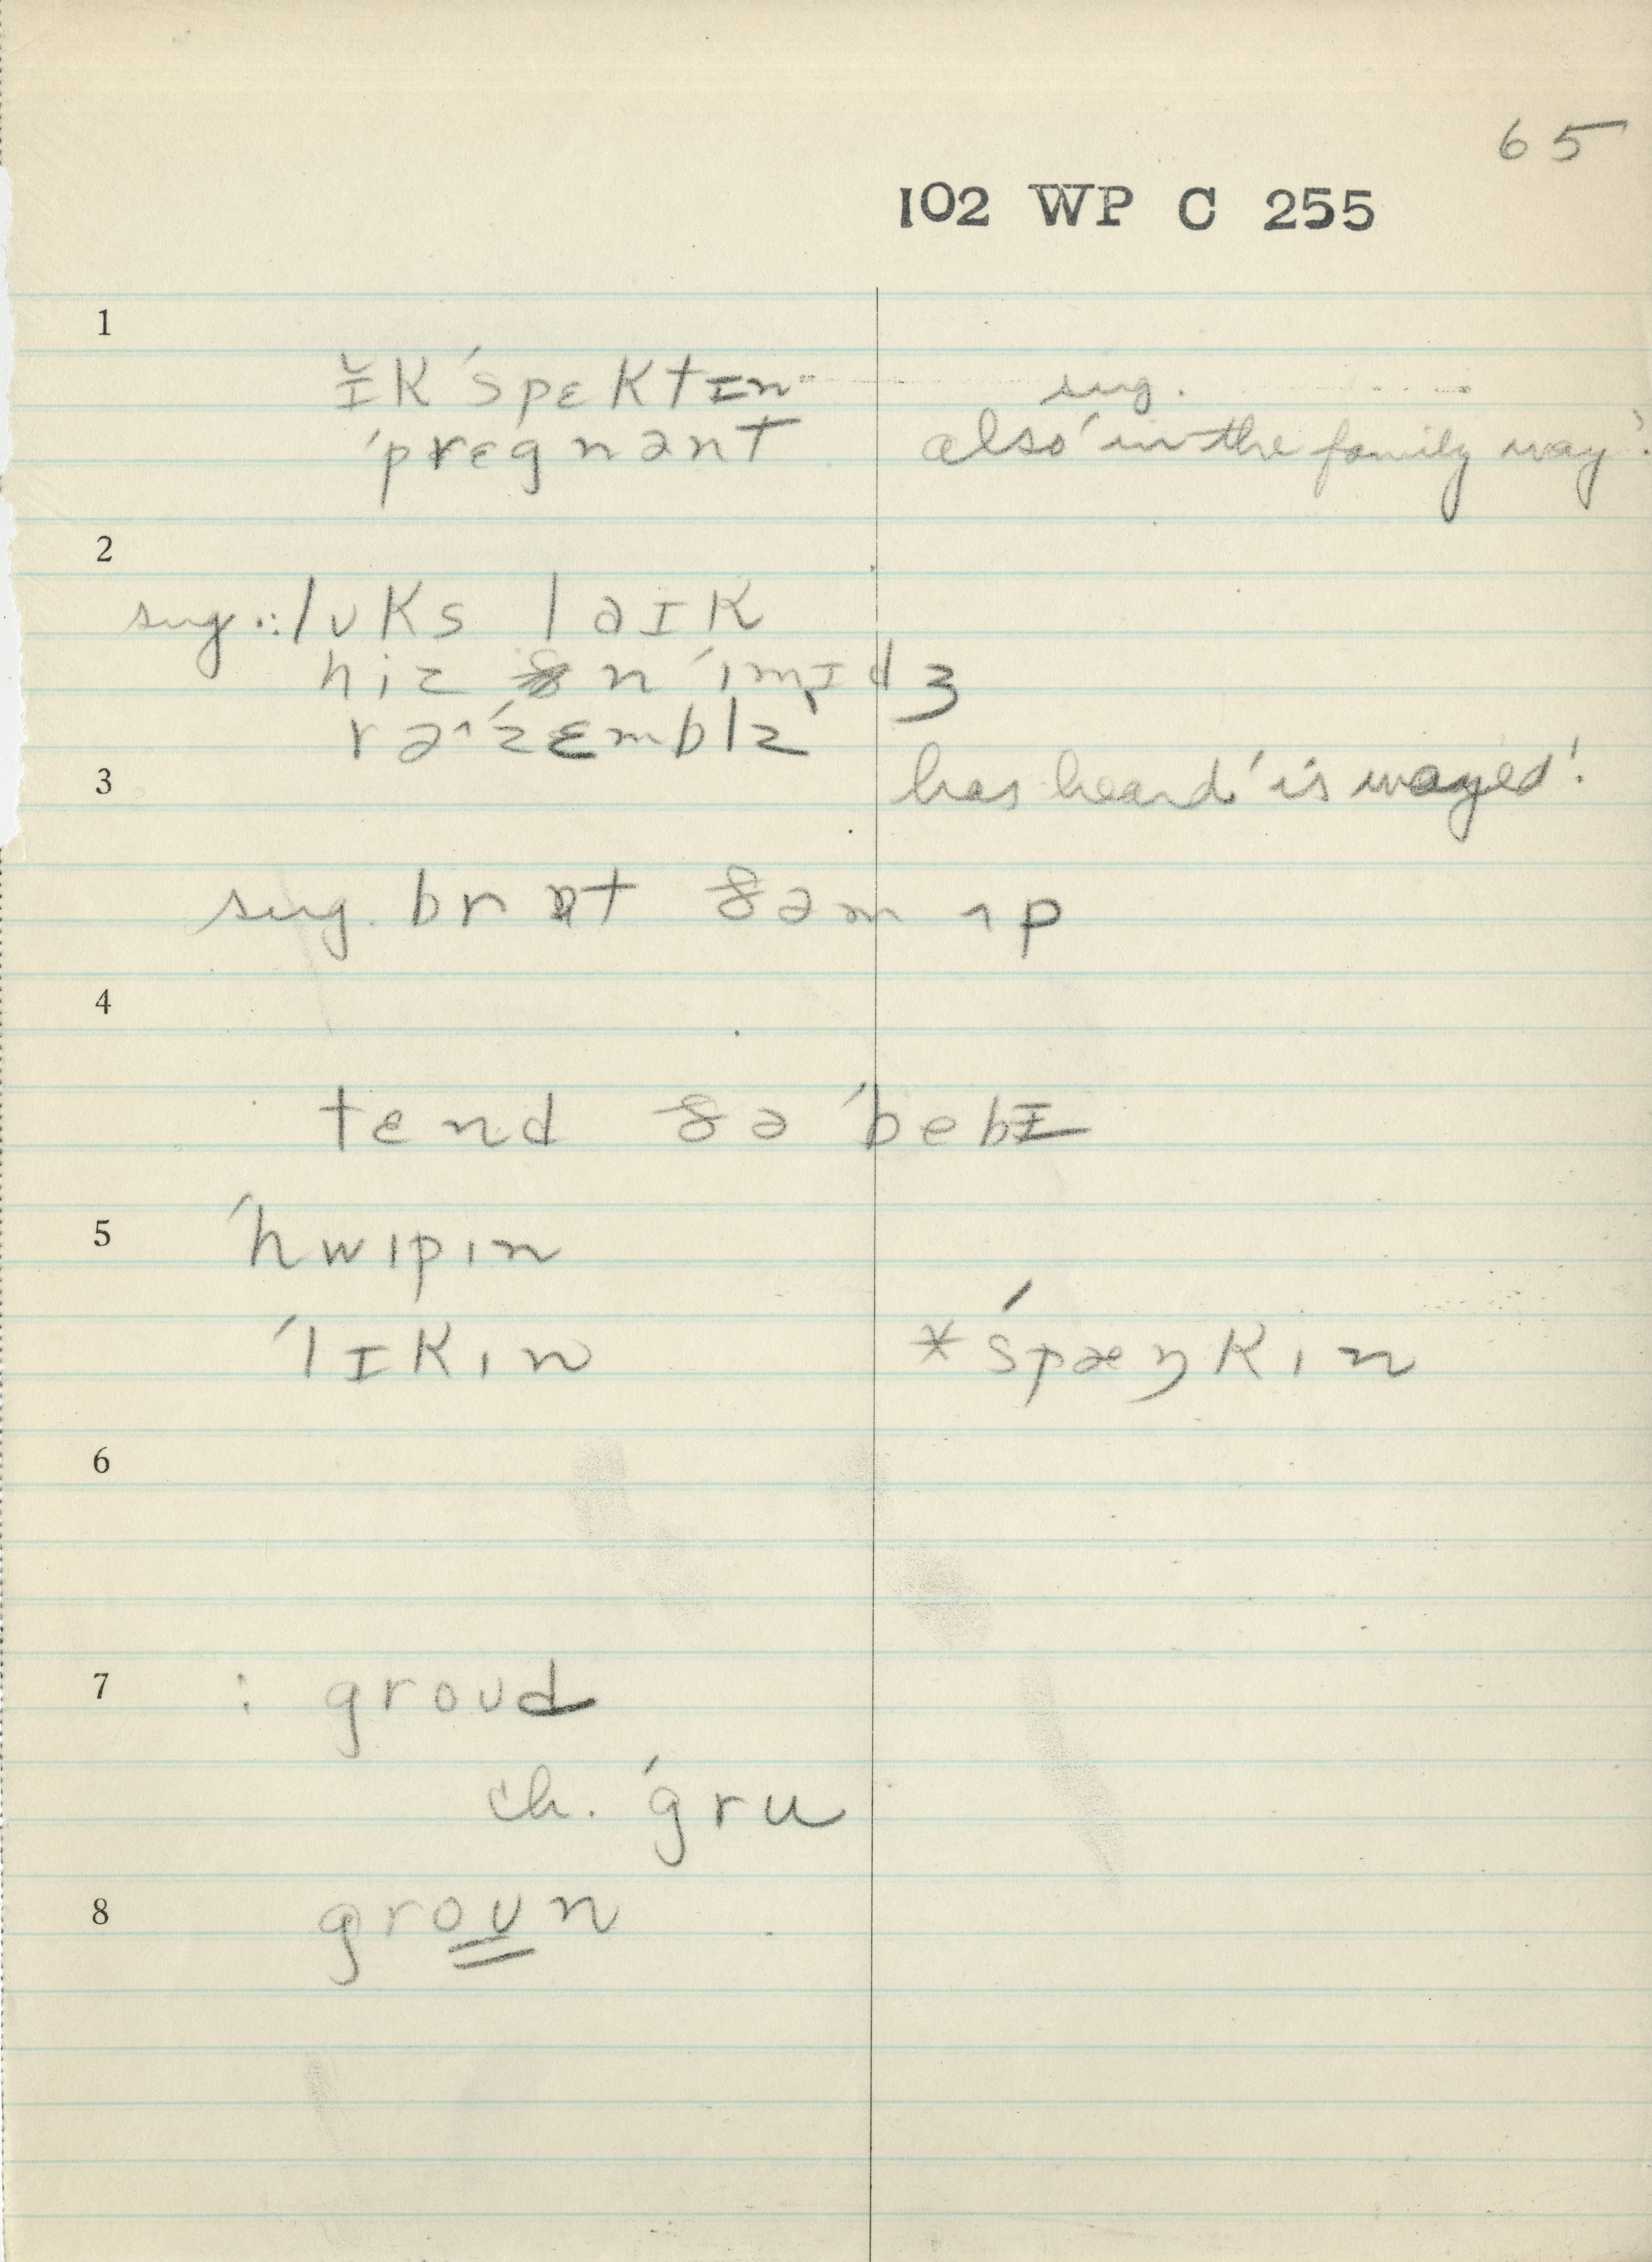 65
102 WP C 255
1
ɪ̆k ˈspɛktɪn sug.
ˈprɛgnənt also 'in the family way'.
2
sug.: lʊks laɪk
hiz ðn ˈɪmɪdʒ
rəˈzɛmblz
3 has heard 'is wayed'.
sug. brɔt ðəm ʌp
4
tɛnd ðə ˈbebɪ
5 ˈhwɪpɪn
ˈlɪkɪn *ˈspæŋkɪn
6
7 : groʊd
ch. ˈgru
8 groʊn